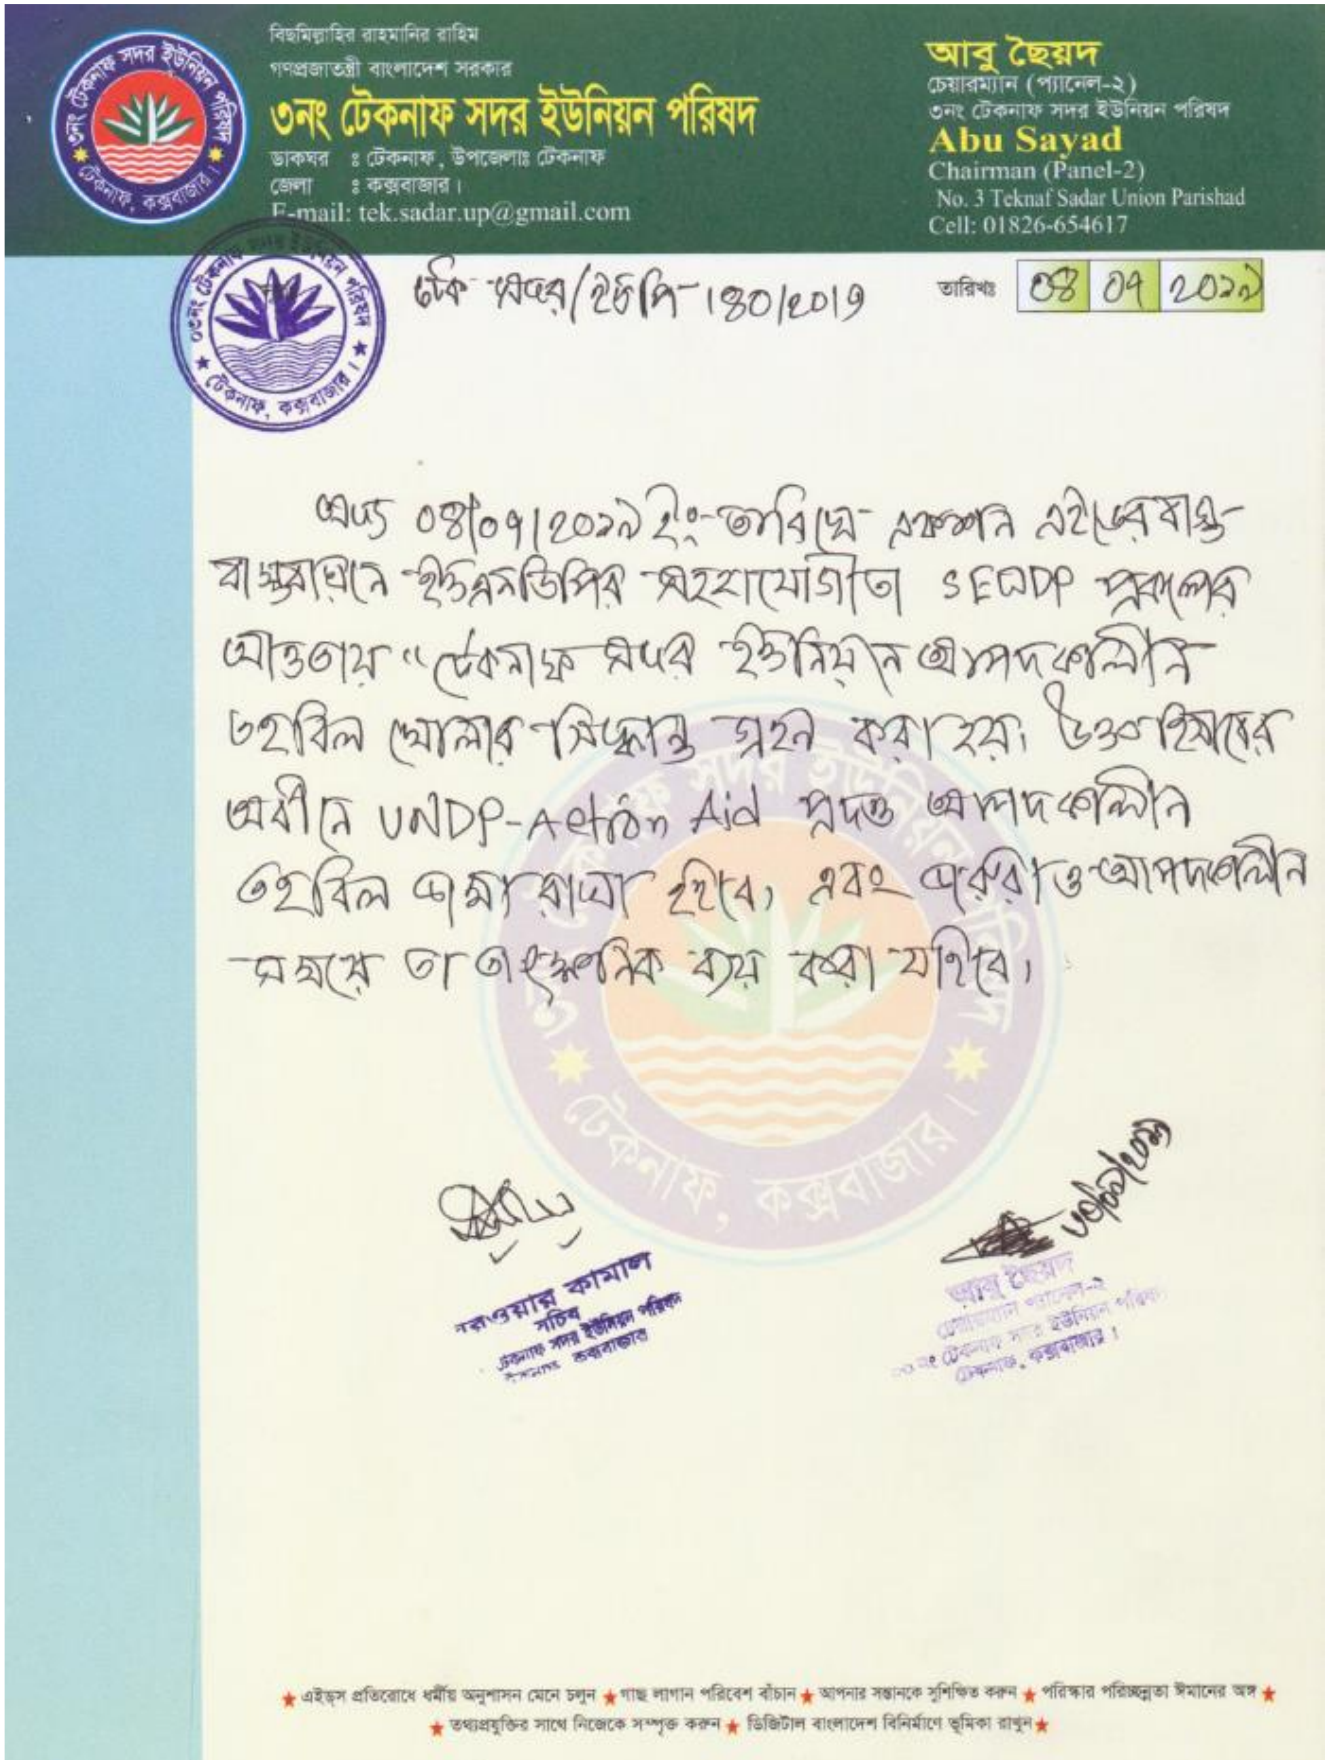 বিছমিল্লাহির রাহমানির রাহিম
গণপ্রজাতন্ত্রী বাংলাদেশ সরকার
৩নং টেকনাফ সদর ইউনিয়ন পরিষদ
ডাকঘর : টেকনাফ, উপজেলাঃ টেকনাফ
জেলা : কক্সবাজার।
E-mail: tek.sadar.up@gmail.com
আবু ছৈয়দ
চেয়ারম্যান (প্যানেল-২)
৩নং টেকনাফ সদর ইউনিয়ন পরিষদ
Abu Sayad
Chairman (Panel-2)
No. 3 Teknaf Sadar Union Parishad
Cell: 01826-654617
৩নং টেকনাফ সদর ইউনিয়ন পরিষদ
টেকনাফ, কক্সবাজার।
৩নং টেকনাফ সদর ইউনিয়ন পরিষদ
টেকনাফ, কক্সবাজার।
টেক সদর/ইউপি-১৪০/২০১৯
তারিখঃ ০৪ ০৭ ২০১৯
অদ্য ০৪/০৭/২০১৯ ইং তারিখে একশন এইডের বাস্ত
বাস্তবায়নে ইউএনডিপির সহযোগীতা প্রকল্পের
আওতায় "টেকনাফ সদর ইউনিয়নে আপদকালীন
তহবিল খোলার সিদ্ধান্ত গ্রহন করা হয়। উক্ত হিসাবের
অধীনে UNDP-Action Aid প্রদত্ত আপদকালীন
তহবিল জমা রাখা হইবে, এবং জরুরী ও আপদকালীন
সময়ে তা তাৎক্ষনিক ব্যয় করা যাইবে।
৩নং টেকনাফ সদর ইউনিয়ন পরিষদ
টেকনাফ, কক্সবাজার।
রওয়ার কামাল
সচিব
টেকনাফ সদর ইউনিয়ন পরিষদ
টেকনাফ কক্সবাজার
আবু ছৈয়দ
চেয়ারম্যান প্যানেল-২
৩নং টেকনাফ সদর ইউনিয়ন পরিষদ
টেকনাফ, কক্সবাজার।
★ এইড্স প্রতিরোধে ধর্মীয় অনুশাসন মেনে চলুন ★ গাছ লাগান পরিবেশ বাঁচান ★ আপনার সন্তানকে সুশিক্ষিত করুন ★ পরিস্কার পরিচ্ছন্নতা ঈমানের অঙ্গ ★
★ তথ্যপ্রযুক্তির সাথে নিজেকে সম্পৃক্ত করুন ★ ডিজিটাল বাংলাদেশ বিনির্মাণে ভূমিকা রাখুন ★